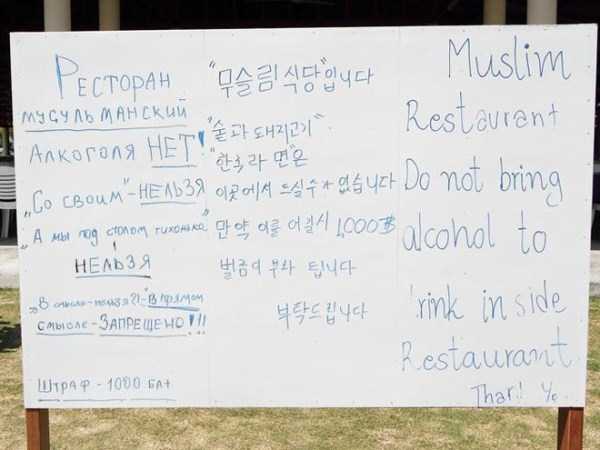 РЕСТОРАН
МУСУЛЬМАНСКИЙ
АЛКОГОЛЯ НЕТ!
„СО СВОИМ" - НЕЛЬЗЯ
„А МЫ ПОД СТОЛОМ ТИХОНЬКО"
НЕЛЬЗЯ
„В СМЫСЛЕ - НЕЛЬЗЯ?!" - В ПРЯМОМ
СМЫСЛЕ - ЗАПРЕЩЕНО!!!
ШТРАФ - 1000 БАТ
"무슬림 식당"입니다
"술과 돼지고기"
"한국라면"은
이곳에서 드실수 없습니다
만약 이를 어길시 1,000฿
벌금이 부과 됩니다
부탁드립니다
Muslim
Restaurant
Do not bring
alcohol to
rink in side
Restaurant